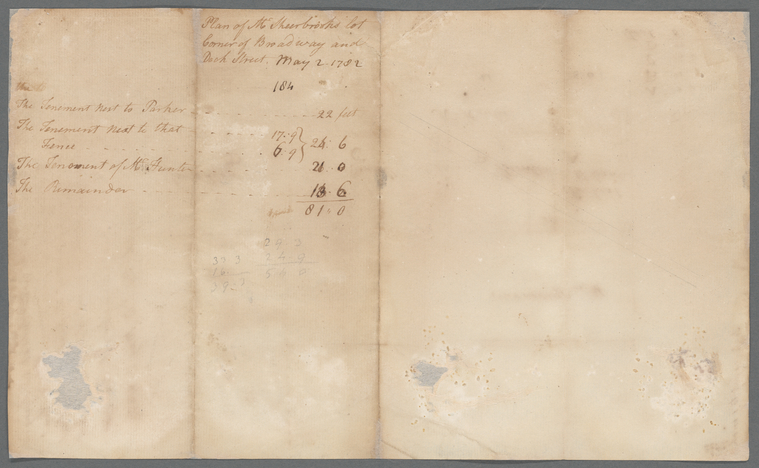 Plan of Mr Sheerbrooks lot
Corner of Broadway and
Dock Street. May 2 1782
184
The Tenement next to Parker - - - 22 feet
The Tenement next to that - - - 17:9
Fence - - - 6:9 } 24: 6
The Tenement of Mr Hunter - - - 21: 0
The Remainder - - - 13 6
81: 0